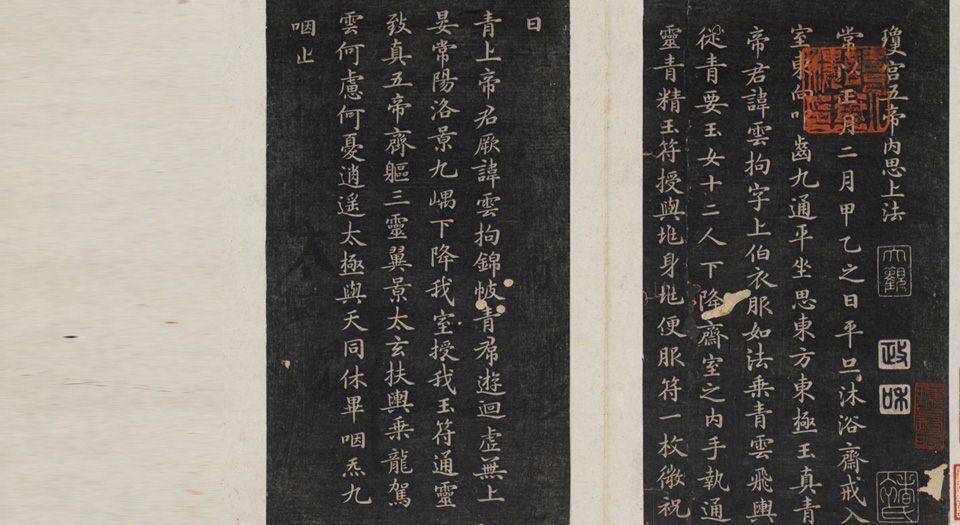 瓊宮五帝内思上法
常以正月二月甲乙之日平旦沐浴齋戒入
室東向叩齒九通平坐思東方東極玉真青
帝君諱雲拘字上伯衣服如法乘青雲飛輿
從青要玉女十二人下降齋室之内手執通
靈青精玉符授與兆身兆便服符一枚微祝
曰
青上帝君厥諱雲拘錦帔青帬遊迴虛無上
晏常陽洛景九嵎下降我室授我玉符通靈
致真五帝齊軀三靈翼景太玄扶輿乘龍駕
雲何慮何憂逍遙太極與天同休畢咽炁九
咽止
大觀
政
和